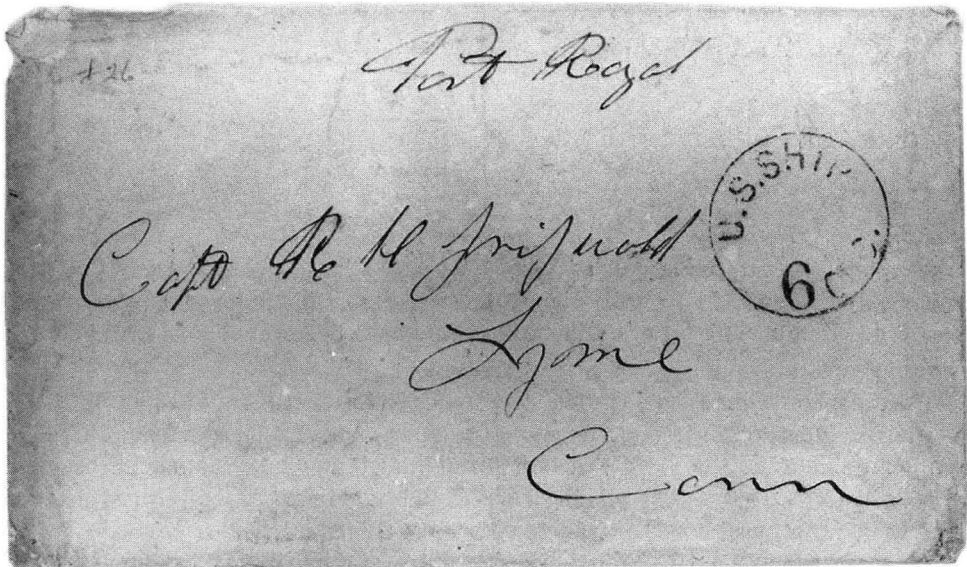 Port Royal
U.S.SHIP
6c
Capt R H Griswold
Lyme
Conn